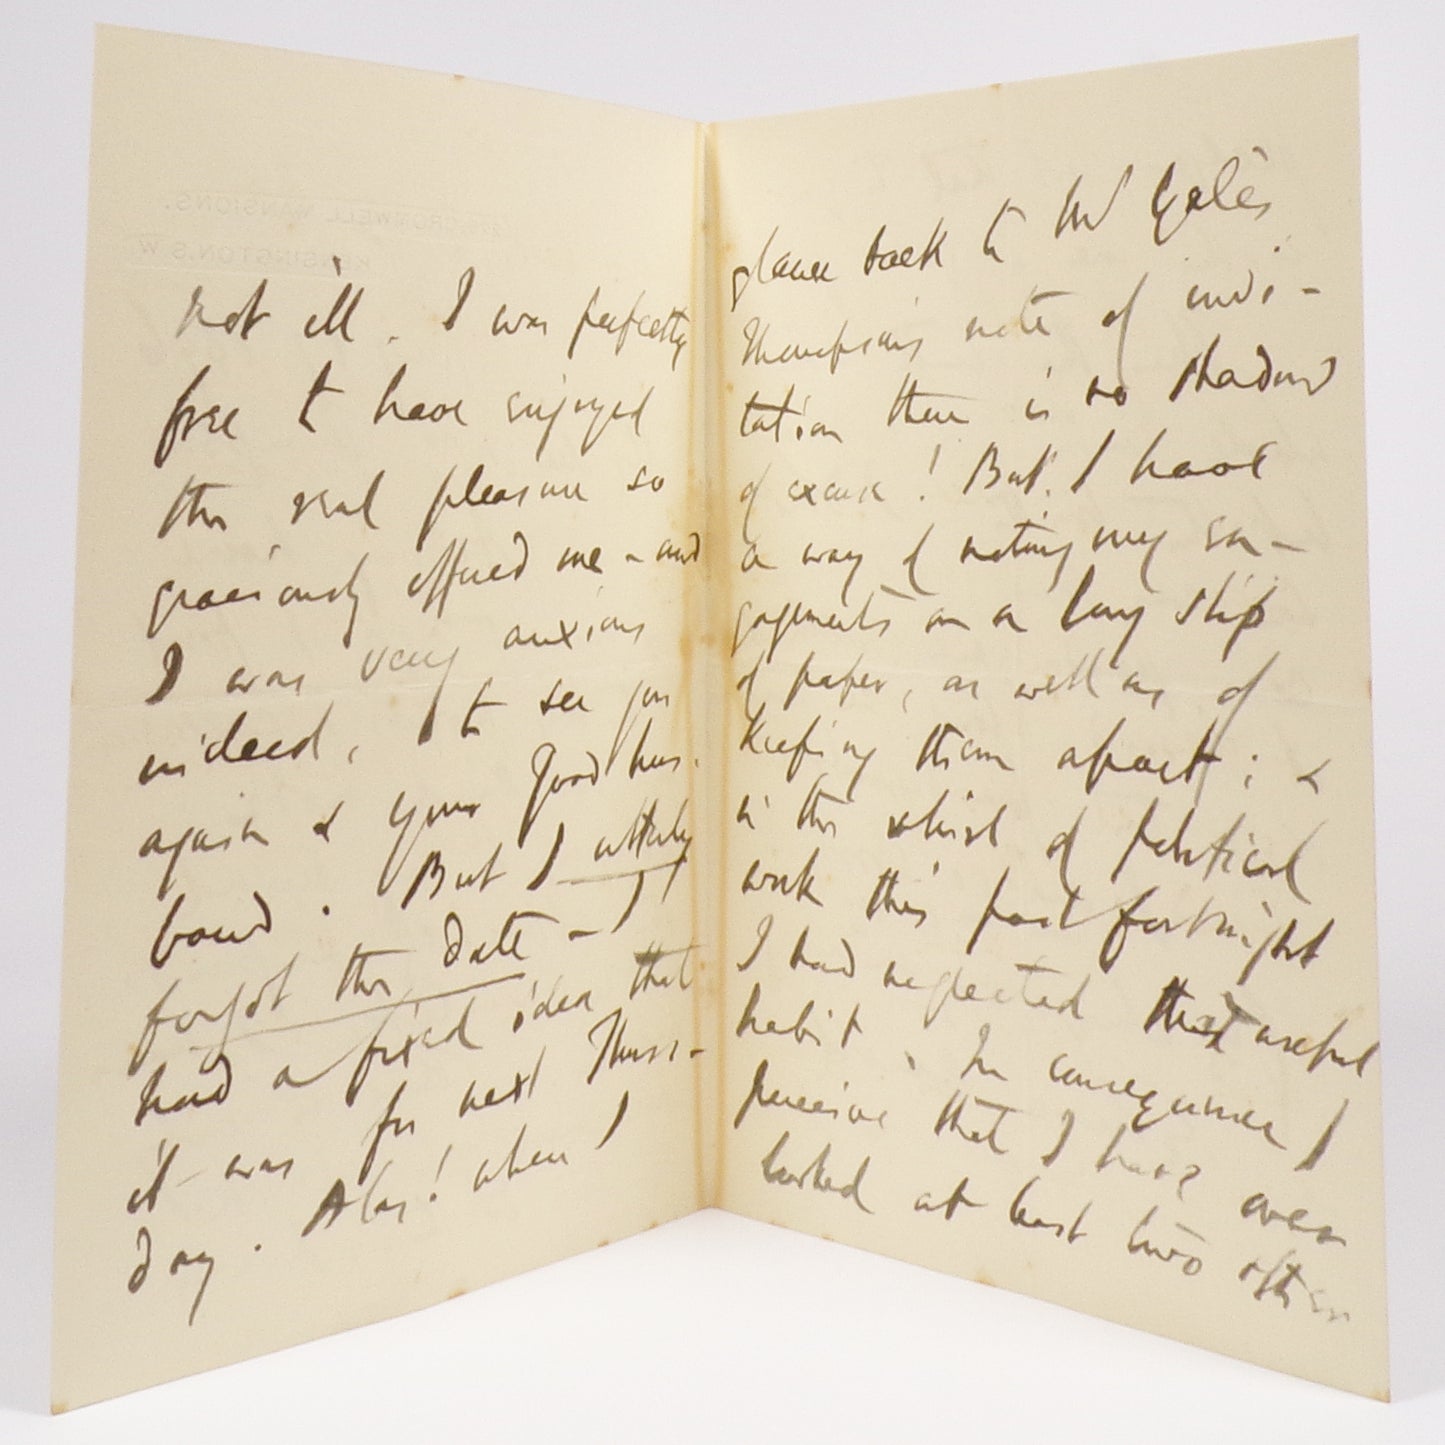 not ill. I was perfectly
free to have enjoyed
the real pleasure so
graciously offered me - and
I was very anxious
indeed, to see you
again & your good hus-
band. But I utterly
forgot the date - I
had a fixed idea that
it was for next Thurs-
day. Alas! when I
glance back to Mr
Thompson's note of invi-
tation there is no shadow
of excuse! But I have
a way of noting my en-
gagements on a long slip
of paper, as well as of
keeping them apart; &
in the whirl of political
work this past fortnight
I had neglected that useful
habit. In consequence I
perceive that I have even
looked at least two other